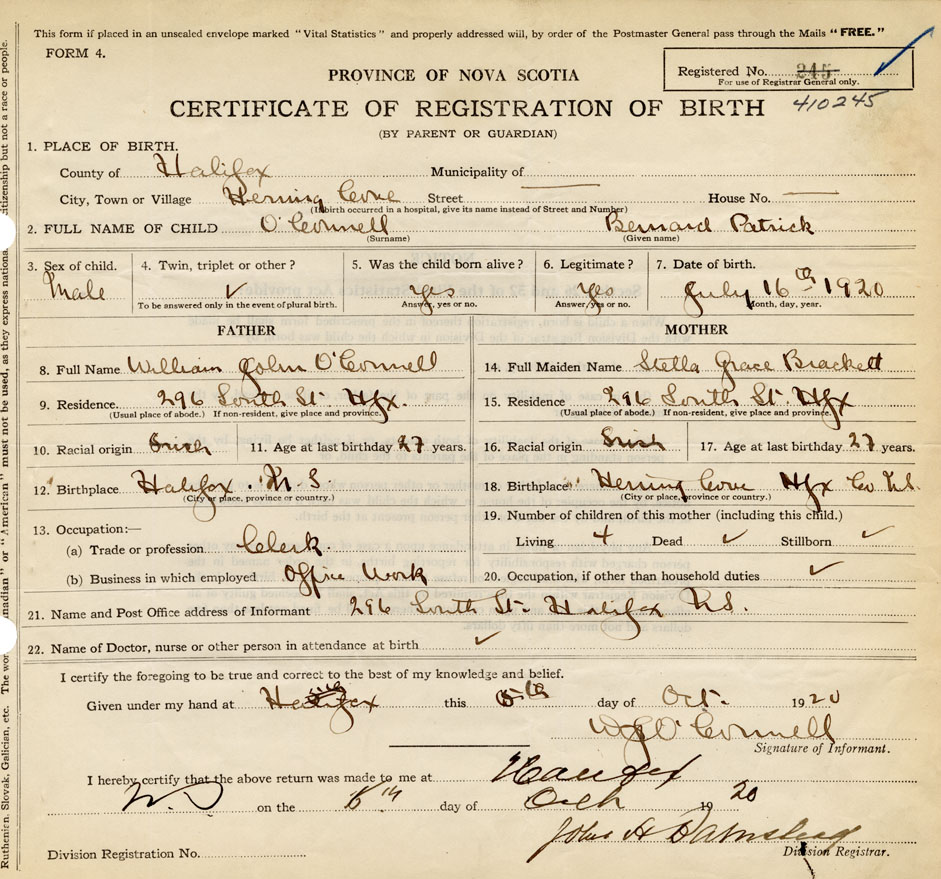 This form if placed in an unsealed envelope marked "Vital Statistics" and properly addressed will, by order of the Postmaster General pass through the Mails "FREE."
FORM 4.
Registered No. 245
For use of Registrar General only.
410245
PROVINCE OF NOVA SCOTIA
CERTIFICATE OF REGISTRATION OF BIRTH
(BY PARENT OR GUARDIAN)
1. PLACE OF BIRTH.
County of Halifax Municipality of
City, Town or Village Herring Cove Street House No.
(If birth occurred in a hospital, give its name instead of Street and Number)
2. FULL NAME OF CHILD O'Connell Bernard Patrick
(Surname) (Given name)
3. Sex of child. 4. Twin, triplet or other? 5. Was the child born alive? 6. Legitimate? 7. Date of birth.
Male ✓ Yes Yes July 16th 1920
To be answered only in the event of plural birth. Answer, yes or no. Answer, yes or no. Month, day, year.
FATHER MOTHER
8. Full Name William John O'Connell 14. Full Maiden Name Stella Grace Brackett
9. Residence 296 South St. Hfx. 15. Residence 296 South St. Hfx
(Usual place of abode.) If non-resident, give place and province. (Usual place of abode.) If non-resident, give place and province.
10. Racial origin Irish 11. Age at last birthday 27 years. 16. Racial origin Irish 17. Age at last birthday 27 years.
12. Birthplace Halifax. N S 18. Birthplace Herring Cove Hfx Co N.S.
(City or place, province or country.) (City or place, province or country.)
13. Occupation:— 19. Number of children of this mother (including this child.)
(a) Trade or profession Clerk. Living 4 Dead ✓ Stillborn ✓
(b) Business in which employed Office Work 20. Occupation, if other than household duties ✓
21. Name and Post Office address of Informant 296 South St. Halifax N.S.
22. Name of Doctor, nurse or other person in attendance at birth ✓
I certify the foregoing to be true and correct to the best of my knowledge and belief.
Given under my hand at Halifax this 5th day of Oct. 1920
W J O'Connell
Signature of Informant.
I hereby certify that the above return was made to me at Halifax
on the day of 1920
John A
Division Registrar.
Division Registration No.
Ruthenian, Slovak, Galician, etc. The
nadian" or "American" must not be used, as they express national
citizenship but not a race or people.